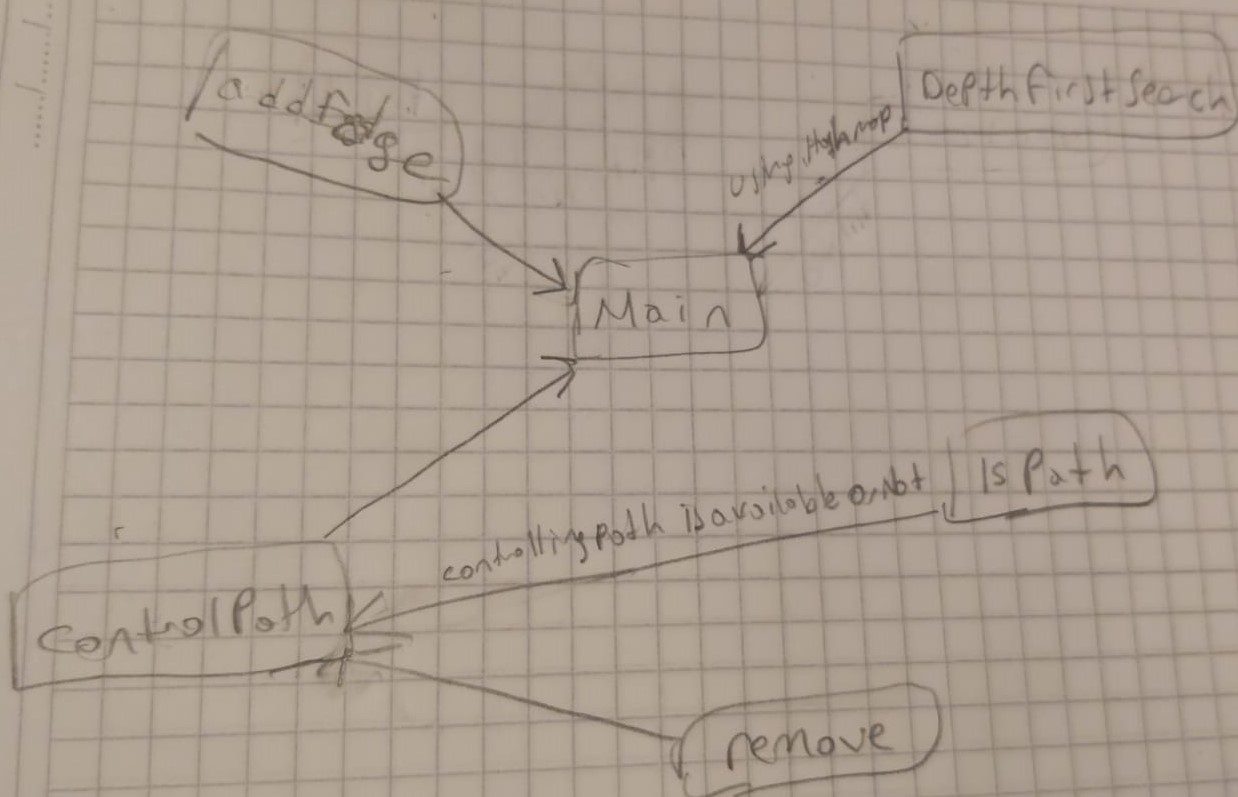 addEdge
DepthFirstSearch
using Hashmap
Main
Is Path
controlling path is available or Not
ControlPath
remove